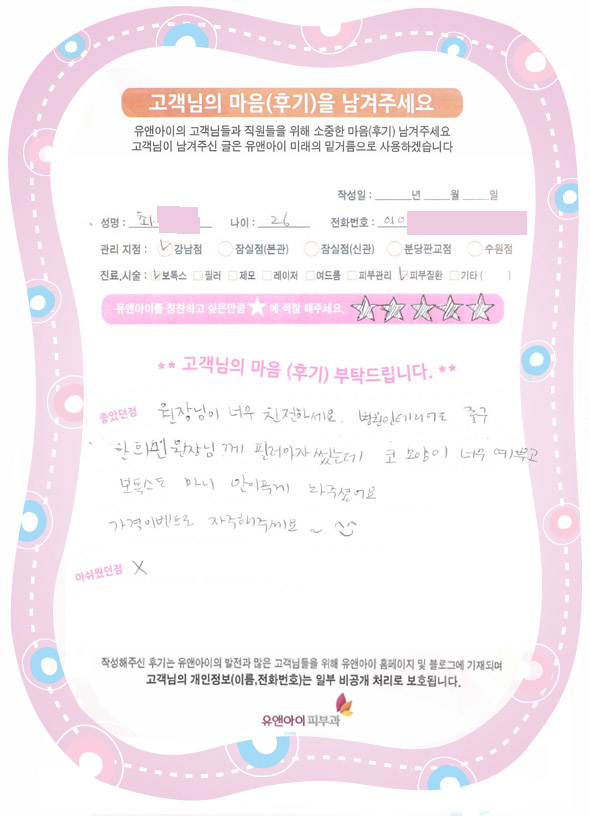 고객님의 마음(후기)을 남겨주세요
유앤아이의 고객님들과 직원들을 위해 소중한 마음(후기) 남겨주세요
고객님이 남겨주신 글은 유앤아이 미래의 밑거름으로 사용하겠습니다
작성일 : 년 월 일
성명 : 최 나이 : 26 전화번호 : 010
관리 지점 : 강남점 잠실점(본관) 잠실점(신관) 분당판교점 수원점
진료,시술 : 보톡스 필러 제모 레이저 여드름 피부관리 피부질환 기타 ( )
유앤아이를 칭찬하고 싶은만큼 ★ 에 색칠 해주세요.
** 고객님의 마음 (후기) 부탁드립니다. **
좋았던점 원장님이 너무 친절하세요. 병원인테리어도 좋구
한희민 원장님 께 필러 썼는데 코 모양이 너무 예쁘고
보톡스도 마니 안아푸게 놔주셨어요
가격이벤트도 자주해주세요 ~
아쉬웠던점 X
작성해주신 후기는 유앤아이의 발전과 많은 고객님들을 위해 유앤아이 홈페이지 및 블로그에 기재되며
고객님의 개인정보(이름,전화번호)는 일부 비공개 처리로 보호됩니다.
유앤아이 피부과